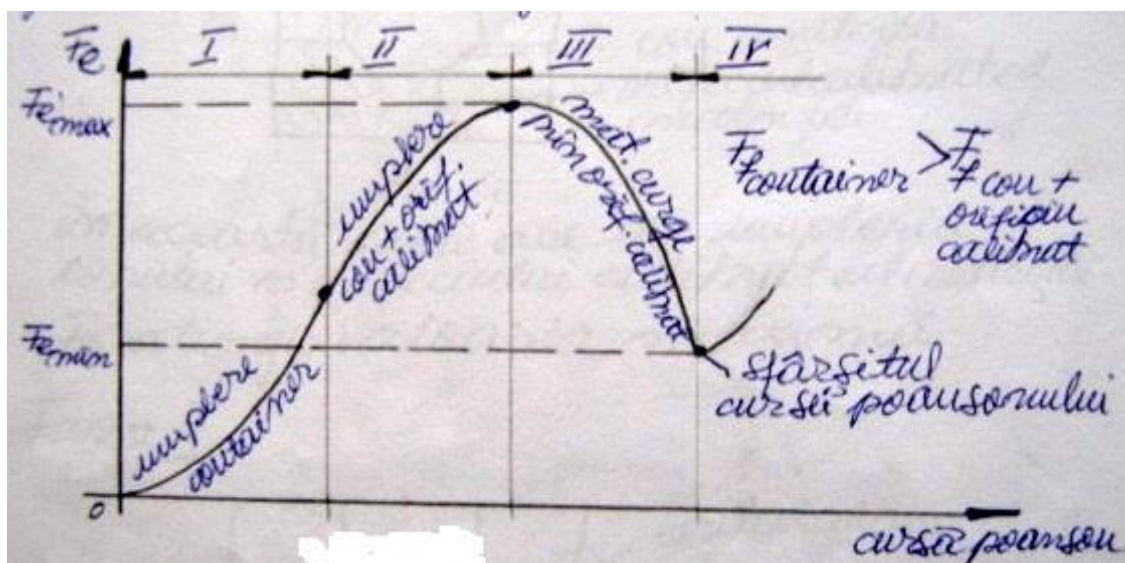 Fe
I
II
III
IV
Fe max
Fe min
0
umplere
container
umplere
con + orif.
calibrat
mat. curge
prin orif. calibrat
Ff container > Ff con +
orificiu
calibrat
sfârşitul
cursă poansonului
cursă poanson